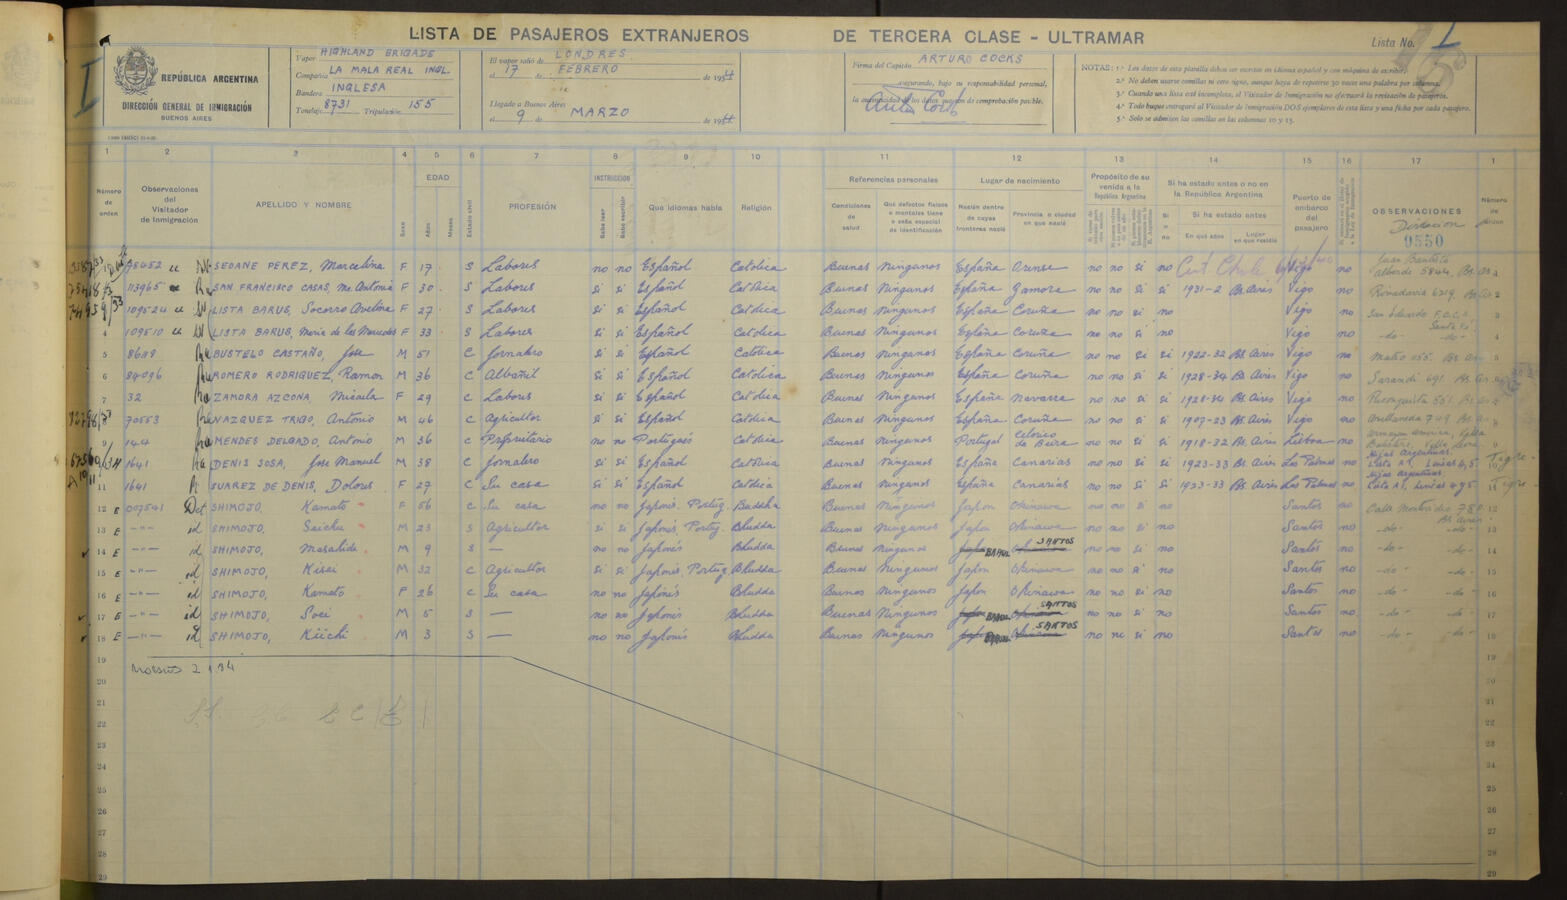 LISTA DE PASAJEROS EXTRANJEROS DE TERCERA CLASE - ULTRAMAR
Lista No. 1
REPÚBLICA ARGENTINA
DIRECCIÓN GENERAL DE INMIGRACIÓN
BUENOS AIRES
Vapor HIGHLAND BRIGADE
Compañía LA MALA REAL INGL.
Bandera INGLESA
Tonelaje 8731 Tripulación 155
El vapor salió de LONDRES
el 17 de FEBRERO de 19
Llegado a Buenos Aires
el 9 de MARZO de 19
Firma del Capitán ARTURO COCKS
asegurando, bajo su responsabilidad personal,
la autenticidad de los datos que son de comprobación posible.
NOTAS: 1.ª Los datos de esta planilla deben ser escritos en idioma español y con máquina de escribir.
2.ª No deben usarse comillas ni otro signo, aunque haya de repetirse 30 veces una palabra por columna.
3.ª Cuando una lista esté incompleta, el Visitador de Inmigración no efectuará la revisación de pasajeros.
4.ª Todo buque entregará al Visitador de Inmigración DOS ejemplares de esta lista y una ficha por cada pasajero.
5.ª Solo se admiten las comillas en las columnas 10 y 15.
1 2 3 4 5 6 7 8 9 10 11 12 13 14 15 16 17 1
Número de orden
Observaciones del Visitador de Inmigración
APELLIDO Y NOMBRE
Sexo
EDAD
Años
Meses
Estado civil
PROFESIÓN
INSTRUCCIÓN
Sabe leer
Sabe escribir
Qué idiomas habla
Religión
Referencias personales
Condiciones de salud
Qué defectos físicos o mentales tiene o seña especial de identificación
Lugar de nacimiento
Nación dentro de cuyas fronteras nació
Provincia o ciudad en que nació
Propósito de su venida a la República Argentina
Si ha estado antes o no en la República Argentina
Si o no
Si ha estado antes
En qué años
Lugar en que residió
Puerto de embarco del pasajero
OBSERVACIONES
Dirección
9550
Número de orden
78452 SEOANE PEREZ, Marcelina F 17 S Labores no no Español Catolica Buenas Ningunos España Orense no no si no Vigo no
113965 SAN FRANCISCO CASAS, Ma Antonia F 30 S Labores si si Español Catolica Buenas Ningunos España Zamora no no si si 1931-2 Bs Aires Vigo no Rivadavia 6219. Bs As 2
109524 LISTA BARUS, Socorro Avelina F 27 S Labores si si Español Catolica Buenas Ningunos España Coruña no no si no Vigo no 3
4 109510 LISTA BARUS, Maria de las Mercedes F 33 S Labores si si Español Catolica Buenas Ningunos España Coruña no no si no Vigo no -do- -do- 4
5 BUSTELO CASTAÑO, Jose M 51 C Jornalero si si Español Catolica Buenas Ningunos España Coruña no no si si 1922-32 Bs Aires Vigo no 5
6 84096 ROMERO RODRIGUEZ, Ramon M 36 C Albañil si si Español Catolica Buenas Ningunos España Coruña no no si si 1928-34 Bs Aires Vigo no Sarandi 691. Bs As
7 32 ZAMORA AZCONA, Micaela F 29 C Labores si si Español Catolica Buenas Ningunos España Navarra no no si si 1928-34 Bs Aires Vigo no
8 70553 VAZQUEZ TRIGO, Antonio M 46 C Agricultor si si Español Catolica Buenas Ningunos España Coruña no no si si 1907-23 Bs Aires Vigo no
9 144 MENDES DELGADO, Antonio M 36 C Propietario no no Portugués Catolica Buenas Ningunos Portugal Celorico da Beira no no si si 1918-32 Bs Aires Lisboa no 9
1641 DENIS SOSA, Jose Manuel M 38 C Jornalero si si Español Catolica Buenas Ningunos España Canarias no no si si 1923-33 Bs Aires Las Palmas no Hijos Argentinos. Tigre 10
11 1641 SUAREZ DE DENIS, Dolores F 27 C Su casa si si Español Catolica Buenas Ningunos España Canarias no no si si 1923-33 Bs Aires Las Palmas no Hijos Argentinos Tigre 11
12 E 007541 Det SHIMOJO, Kamato F 56 C Su casa no no Japonés. Portug. Buddha Buenas Ningunos Japon Okinawa no no si no Santos no Calle Montevideo 780 Bs Aires 12
13 E -"- id SHIMOJO, Saichu M 23 S Agricultor si si Japonés, Portug. Bhudda Buenas Ningunos Japon Okinawa no no si no Santos no -do- -do- 13
14 E -"- id SHIMOJO, Masahide M 9 S — no no Japonés Bhudda Buenas Ningunos BRASIL SANTOS no no si no Santos no -do- -do- 14
15 E -"- id SHIMOJO, Kisei M 32 C Agricultor si si Japonés, Portug Bhudda Buenas Ningunos Japon Okinawa no no si no Santos no -do- -do- 15
16 E -"- id SHIMOJO, Kamato F 26 C Su casa no no Japonés Bhudda Buenas Ningunos Japon Okinawa no no si no Santos no -do- -do- 16
17 E -"- id SHIMOJO, Soei M 5 S — no no Japonés Bhudda Buenas Ningunos BRASIL SANTOS no no si no Santos no -do- -do- 17
18 E -"- id SHIMOJO, Kiichi M 3 S — no no Japonés Bhudda Buenas Ningunos BRASIL SANTOS no no si no Santos no -do- -do- 18
19 19
20 20
21 21
22 22
23 23
24 24
25 25
26 26
27 27
28 28
29 29